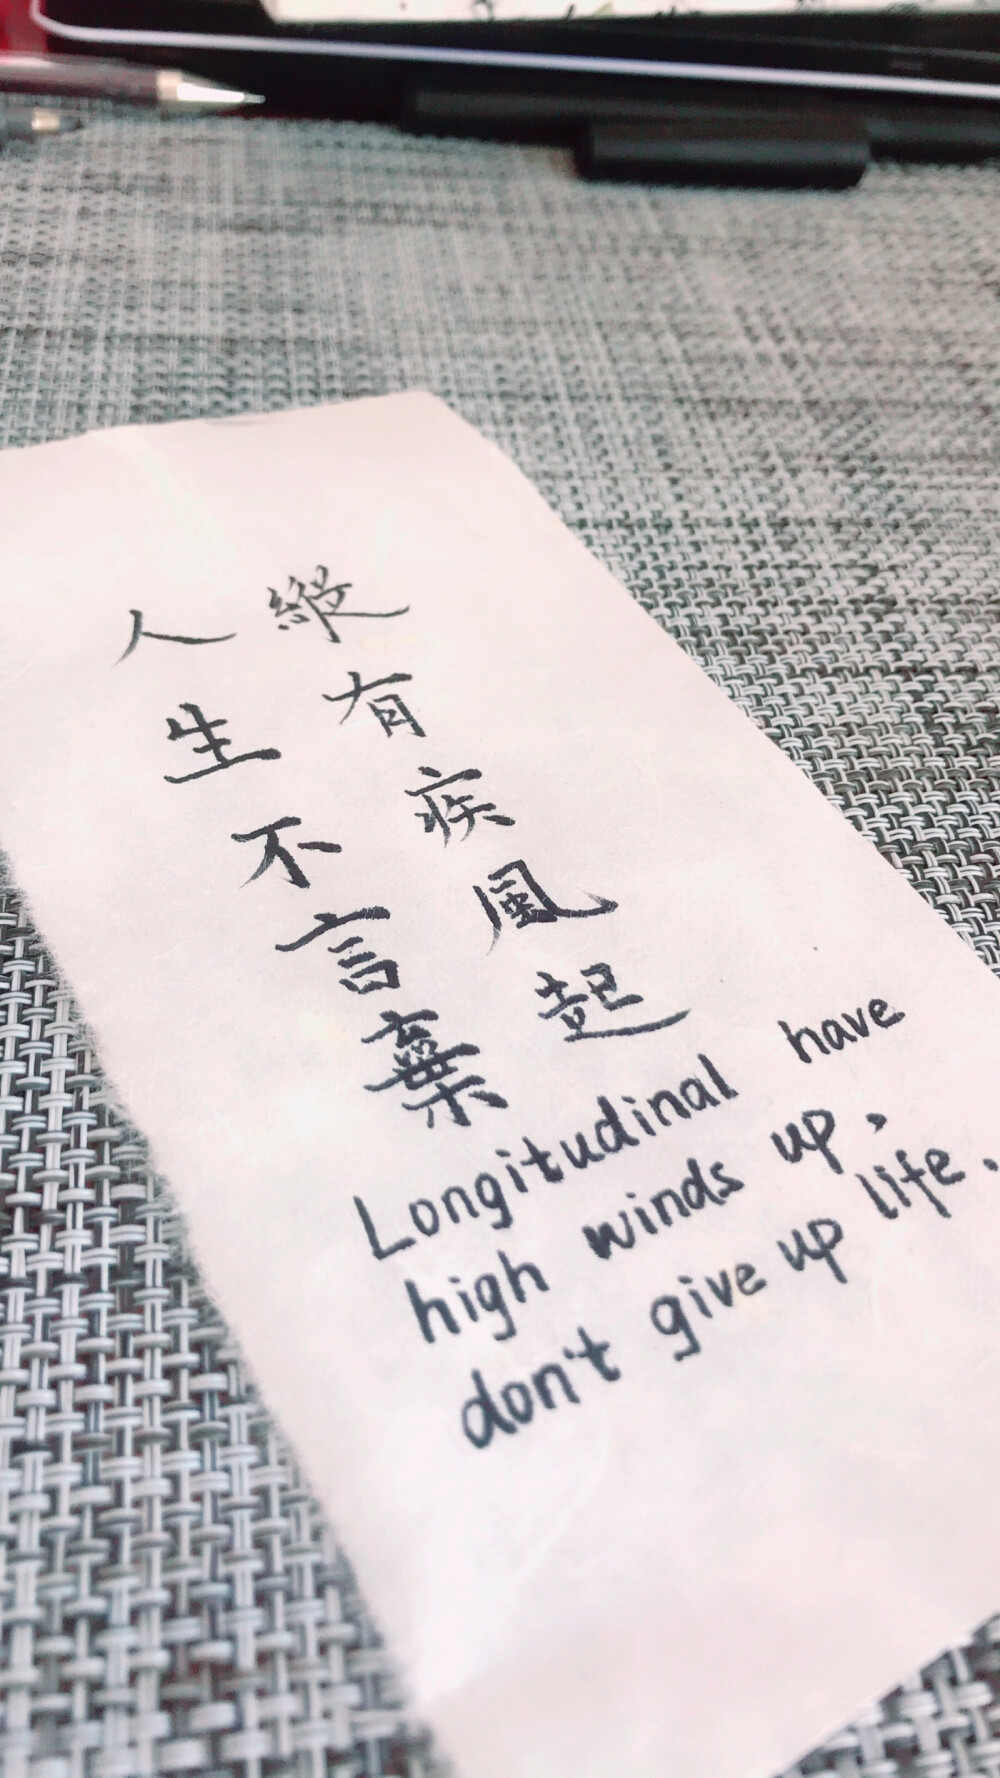 縱有疾風起
人生不言棄
Longitudinal have
high winds up,
don't give up life.